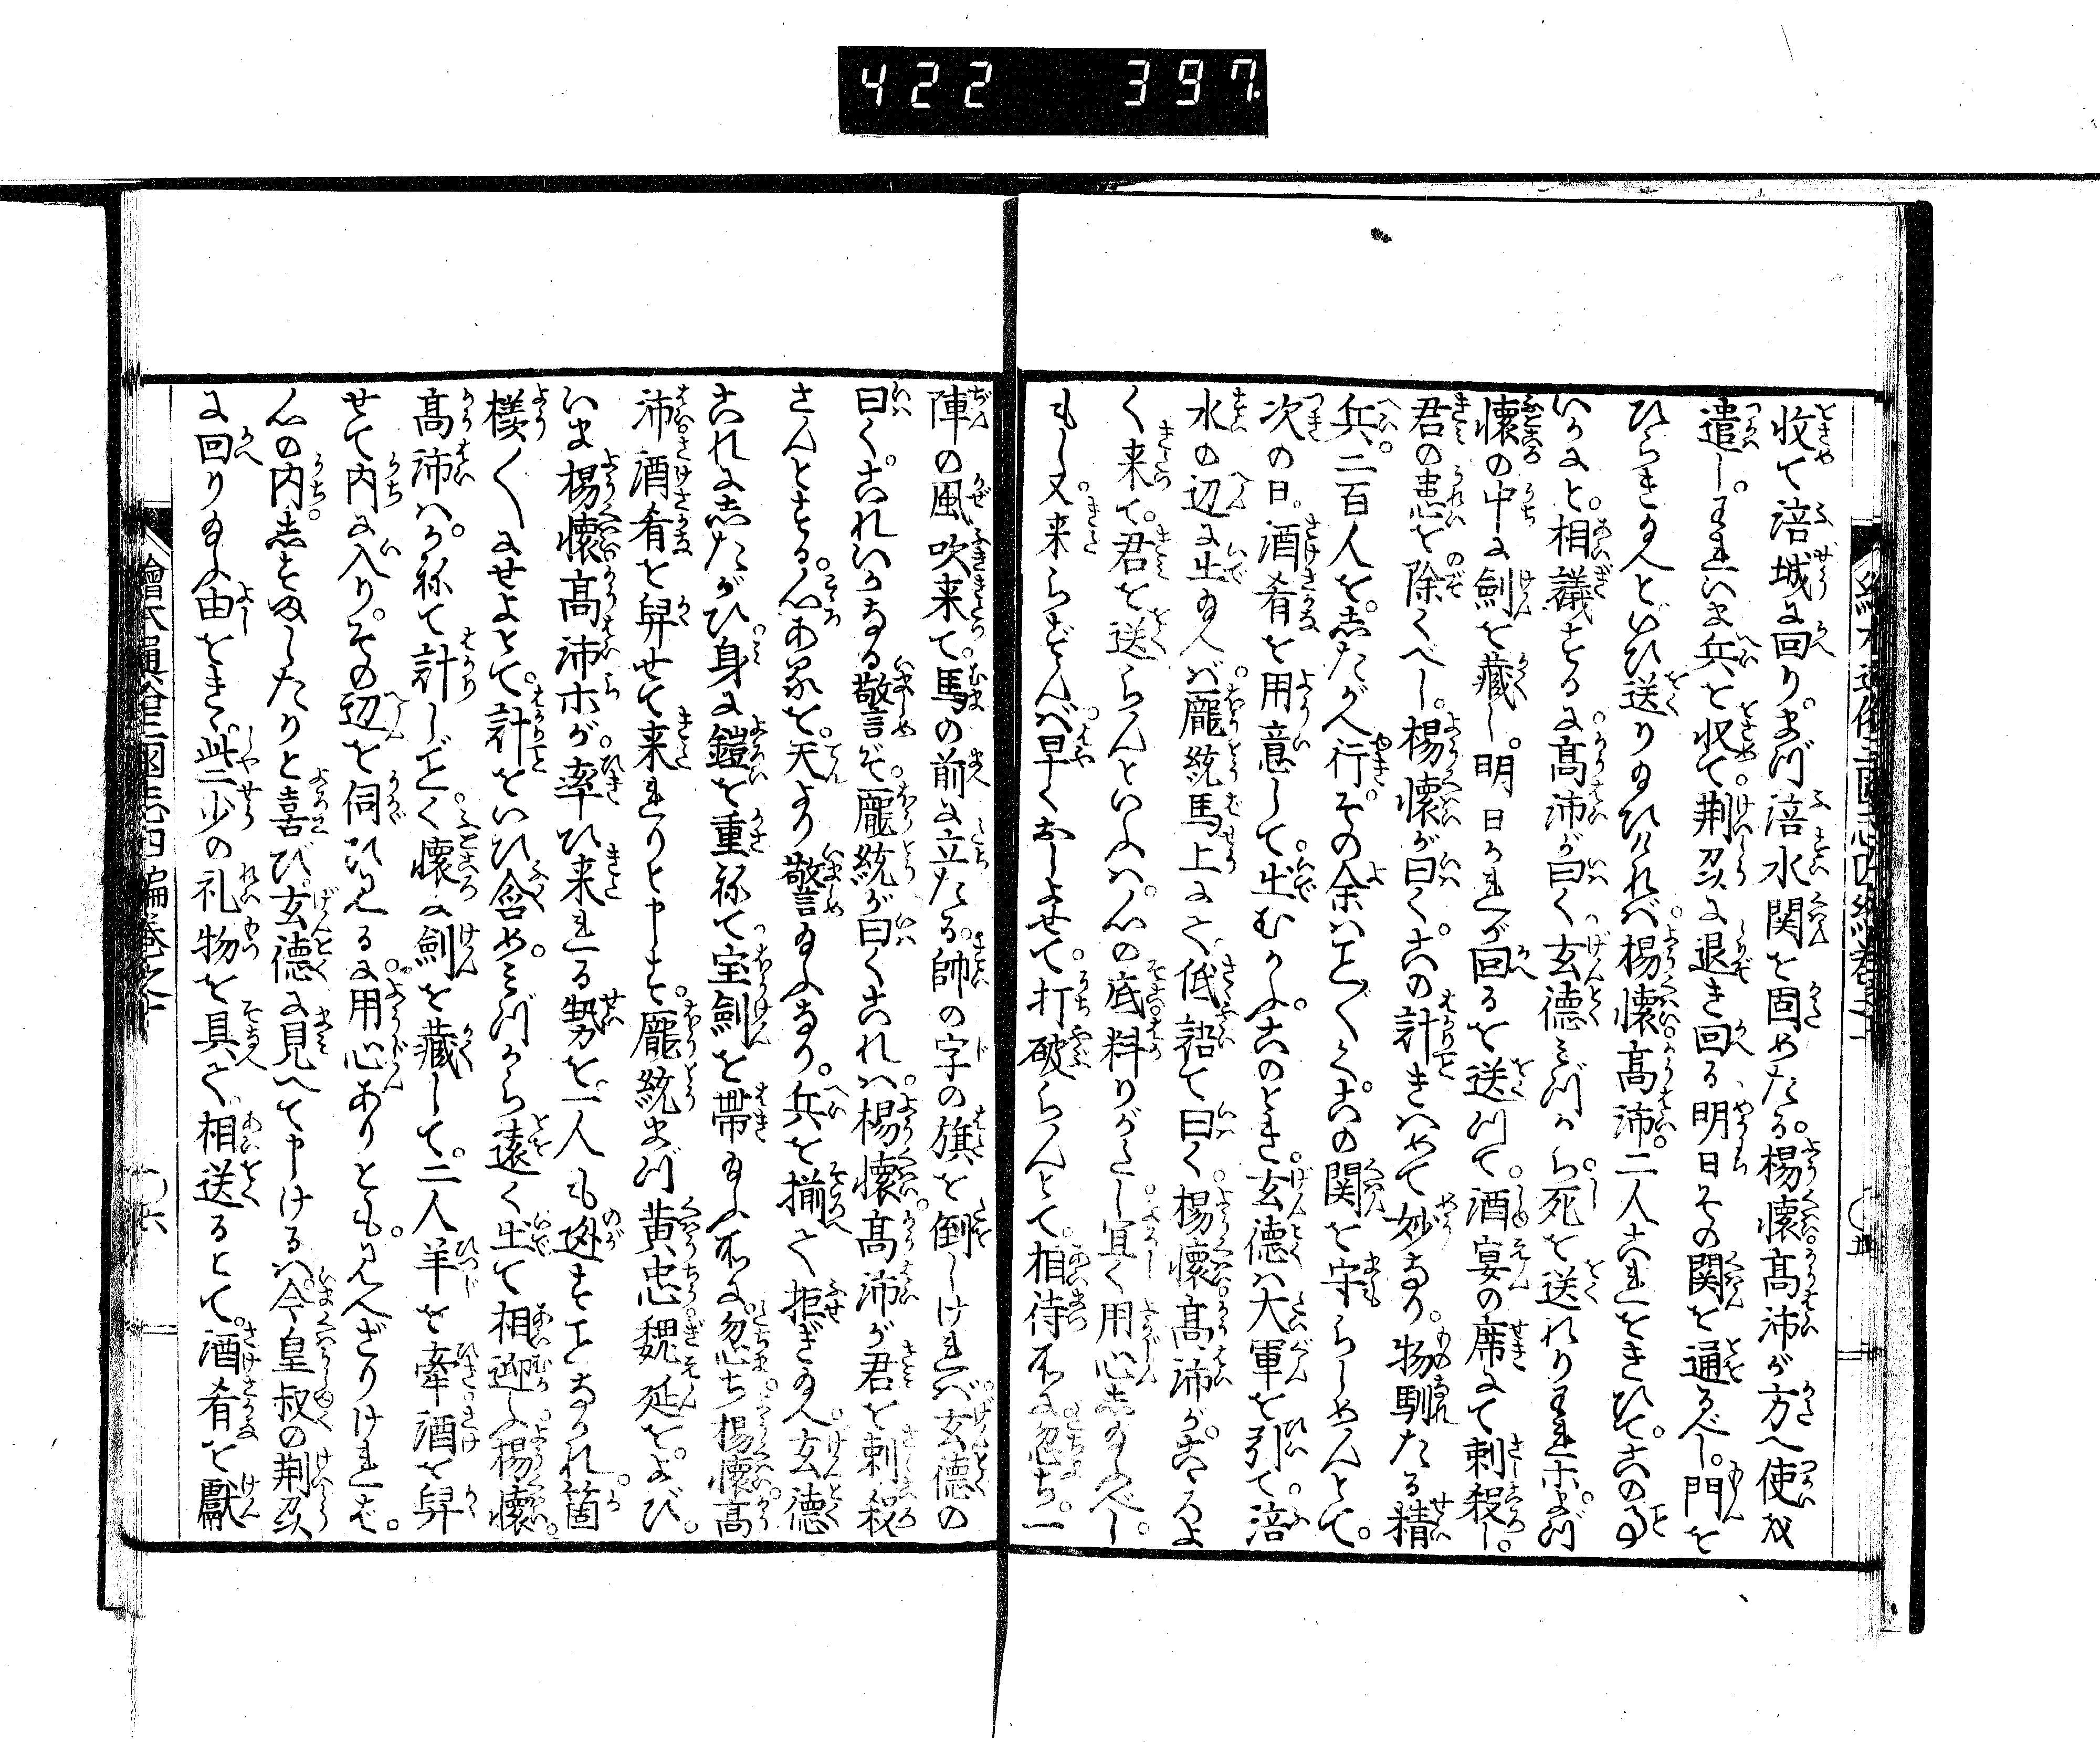 422 397
收て涪城に回り。まづ涪水関を固めたる。楊懐高沛が方へ使を
遣し。われいま兵を収て。荆州に退き回る、明日その関を通るべし。門を
ひらき給へといひ送り給ひければ。楊懐高沛。二人これをきひて。この事
いかにと。相議するに。高沛が曰く、玄徳みづから死を送れりわれホまづ
懐の中に劍を藏し。明日かれが回るを送つて。酒宴の席にて刺殺し。
君の患を除くべし。楊懐が曰く。この計きはめて妙なり。物馴たる精
兵。二百人を。したがへ行。その余はこと〲く。この関を守らしめんとて。
次の日。酒肴を用意して。出むかふ。このとき。玄徳は大軍を引て。涪
水の辺に出給へば。龐統馬上にて、低語て曰く。楊懐高沛が。こゝろよ
く来て。君を送らんといふは。心の底料りがたし宜く用心し給ふべし。
もし又来らずんば早くおしよせて。打破らんとて。相待所に忽ち。一
陣の風吹来て。馬の前に立たる。帥の字の旗を倒しければ。玄徳の
曰く。これいかなる警ぞ。龐統が曰くこれは。楊懐高沛が君を刺殺
さんとする。心あるを。天より警給ふなり。兵を揃て拒ぎ給へ。玄徳
これにしたがひ。身に鎧を重ねて宝劍を帯給ふ所に。忽ち楊懐高
沛酒肴を舁せて来れりと申す。龐統まづ黄忠魏延を。よび。
いま楊懐高沛ホが。率ひ来れる勢を。一人も迯すことなかれ。箇
様〱にせよとて。計をいひ含め。みづから遠く出て相迎ふ。楊懐。
高沛は。かねて計しごとく。懐に劍を藏して。二人羊を牽酒を舁
せて内に入り。その辺を伺ひ見るに。用心ありとも。見へざりければ。
心の内。しすましたりと喜び。玄徳に見へて申けるは。今皇叔の荆州
に回り給ふ由をきゝ。些少の礼物を具て、相送るとて。酒肴を獻